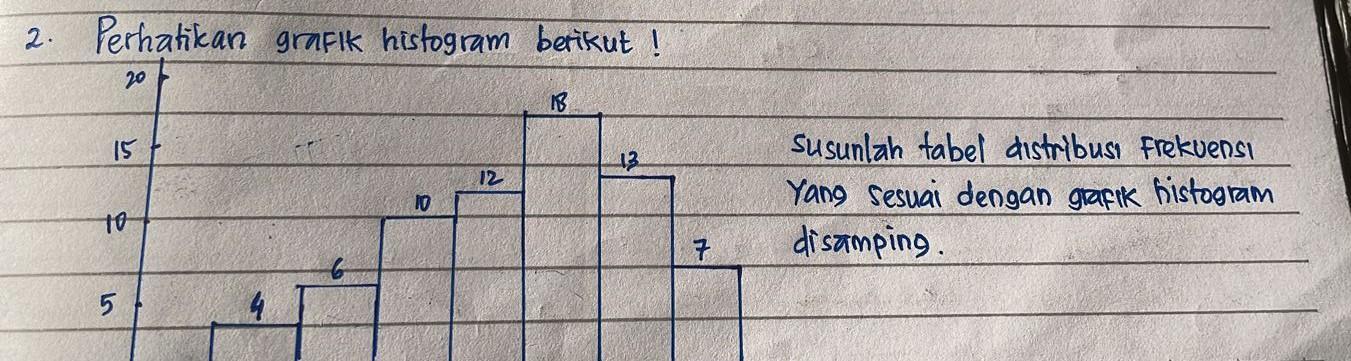 2. Perhatikan grafik histogram berikut !
20
18
15
13
12
10
10
7
6
5
4
Susunlah tabel distribusi Frekuensi
Yang sesuai dengan grafik histogram
disamping.